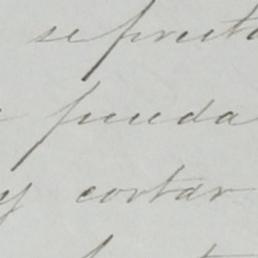 se presta
pueda
y cortar